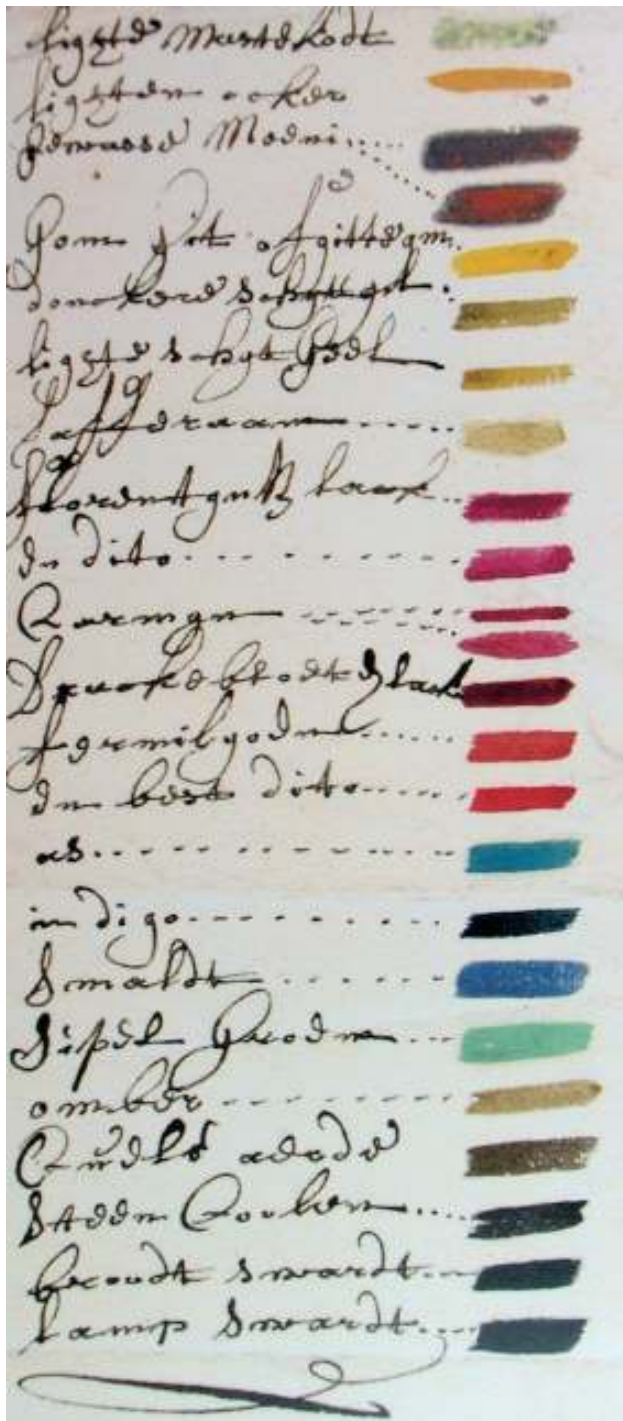 ligte mastekodt
ligten oker
gewasse Meeni
Gom Git of gittegm
donckere schytgel
ligte schyt Geel
Safferaan
florentynss lack
en dito
Carmyn
Drackebloets lack
fermilyoen
en best dito
as
indigo
Smaldt
Sipel Groen
omber
Ceuls aerde
Steen Coolen
broodt swardt
lamp Swardt